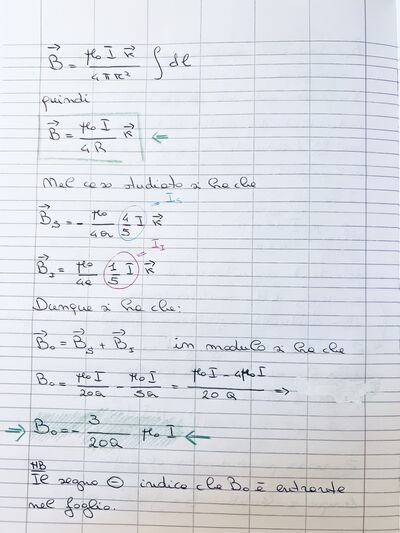 B⃗ = μ₀ I k⃗ / 4πr² ∫ dl
quindi
B⃗ = μ₀ I / 4R k⃗ ⇐
Nel caso studiato si ha che
B⃗s = - μ₀/4a 4/5 I k⃗ = Is
B⃗I = μ₀/4a 1/5 I k⃗ = II
Dunque si ha che:
B⃗₀ = B⃗s + B⃗I in modulo si ha che
B₀ = μ₀I/20a - μ₀I/5a = μ₀I - 4μ₀I / 20a ⇒
⇒ B₀ = - 3/20a μ₀ I ⇐
NB
Il segno ⊖ indica che B₀ è entrante
nel foglio.